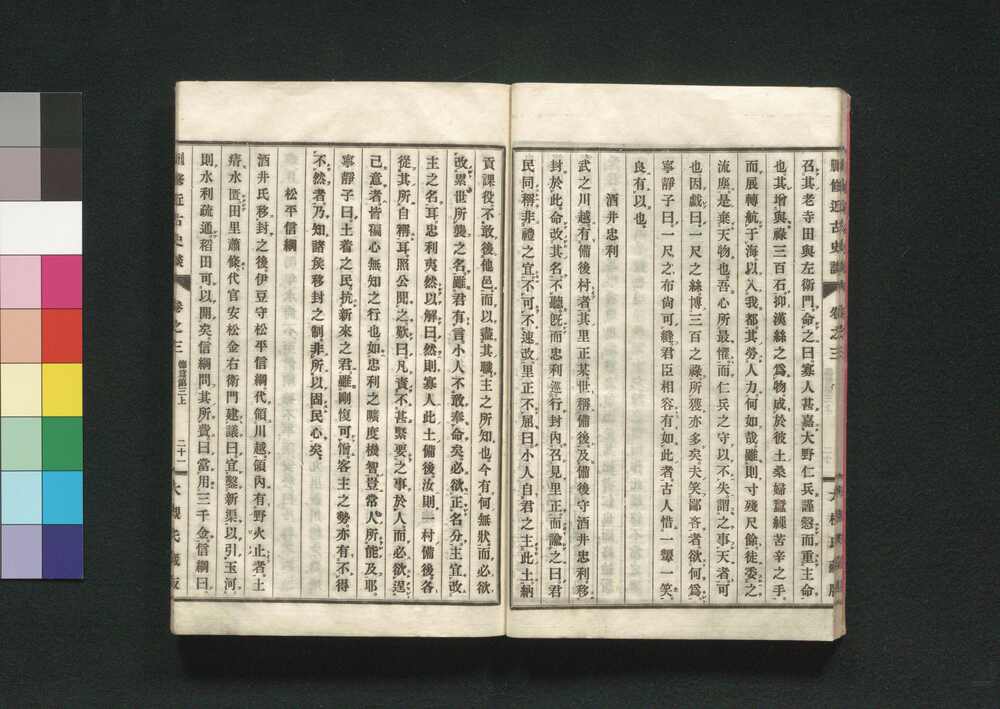 刪修近古史談 卷之三
召其老寺田與左衞門命之曰寡人甚嘉大野仁兵謹愨而重主命
也其增與祿三百石抑漢絲之爲物成於彼土桑婦蠶繅苦辛之手
而展轉航于海以入我都其勞人力何如哉雖則寸殘尺餘徒委之
流塵是棄天物也吾心所最懼而仁兵之守以不失謂之事天者可
也因戲曰一尺之絲博三百之祿所獲亦多矣夫笑鄙吝者欲何爲
寧靜子曰一尺之布尙可縫君臣相容有如此者古人惜一顰一笑
良有以也
酒井忠利
武之川越有備後村者其里正某世稱備後及備後守酒井忠利移
封於此命改其名不聽旣而忠利巡行封內召見里正而諭之曰君
民同稱非禮之宜不可不速改里正不屈曰小人自君之主此土納
貢課役不敢後他邑而以盡其職主之所知也今有何無狀而必欲
改累世所襲之名雖君有言小人不敢奉命矣必欲正名分主宜改
主之名耳忠利夷然以解曰然則寡人此土備後汝則一村備後各
從其所自稱耳照公聞之歎曰凡責不甚緊要之事於人而必欲逞
己意者皆褊心無知之行也如忠利之曠度機智豈常人所能及耶
寧靜子曰土着之民抗新來之君雖剛愎可憎客主之勢亦有不得
不然者乃知諸侯移封之制非所以固民心矣
松平信綱
酒井氏移封之後伊豆守松平信綱代領川越領內有野火止者土
瘠水匱田里蕭條代官安松金右衞門建議曰宜鑿新渠以引玉河
則水利疏通稻田可以開矣信綱問其所費曰當用三千金信綱曰
刪修近古史談 卷之三 德篇第三上 二十一 大槻氏藏版